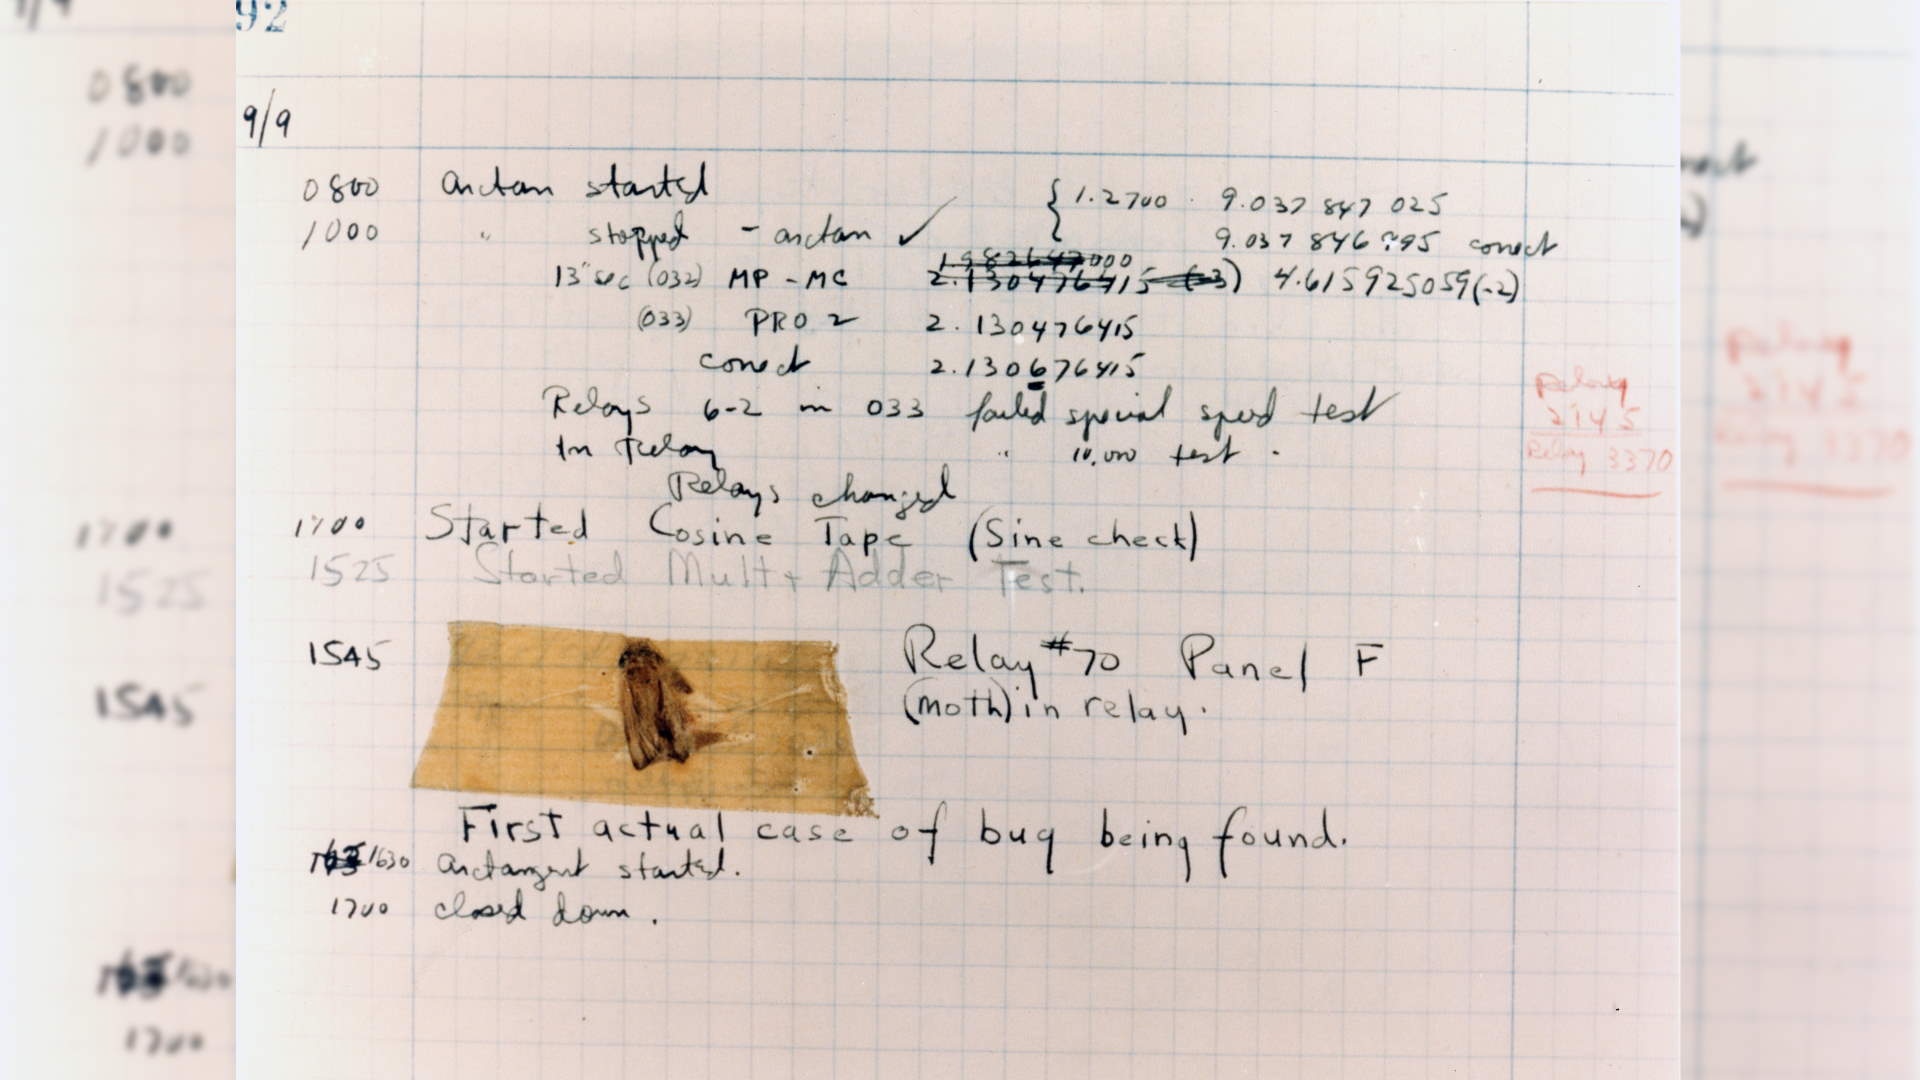 92
9/9
0800 Antan started { 1.2700 9.037 847 025
1000 " stopped - antan ✓ 9.037 846 995 conect
13"sec (032) MP - MC 2.130476415 (-3) 4.615925059(-2)
(033) PRO 2 2.130476415
conect 2.130676415
Relays 6-2 in 033 failed special speed test
In Relay " 10,000 test.
Relays changed
Relay
2145
Relay 3370
1700 Started Cosine Tape (Sine check)
1525 Started Mult + Adder Test.
1545 Relay #70 Panel F
(moth) in relay.
First actual case of bug being found.
1630 Antangent started.
1700 closed down.